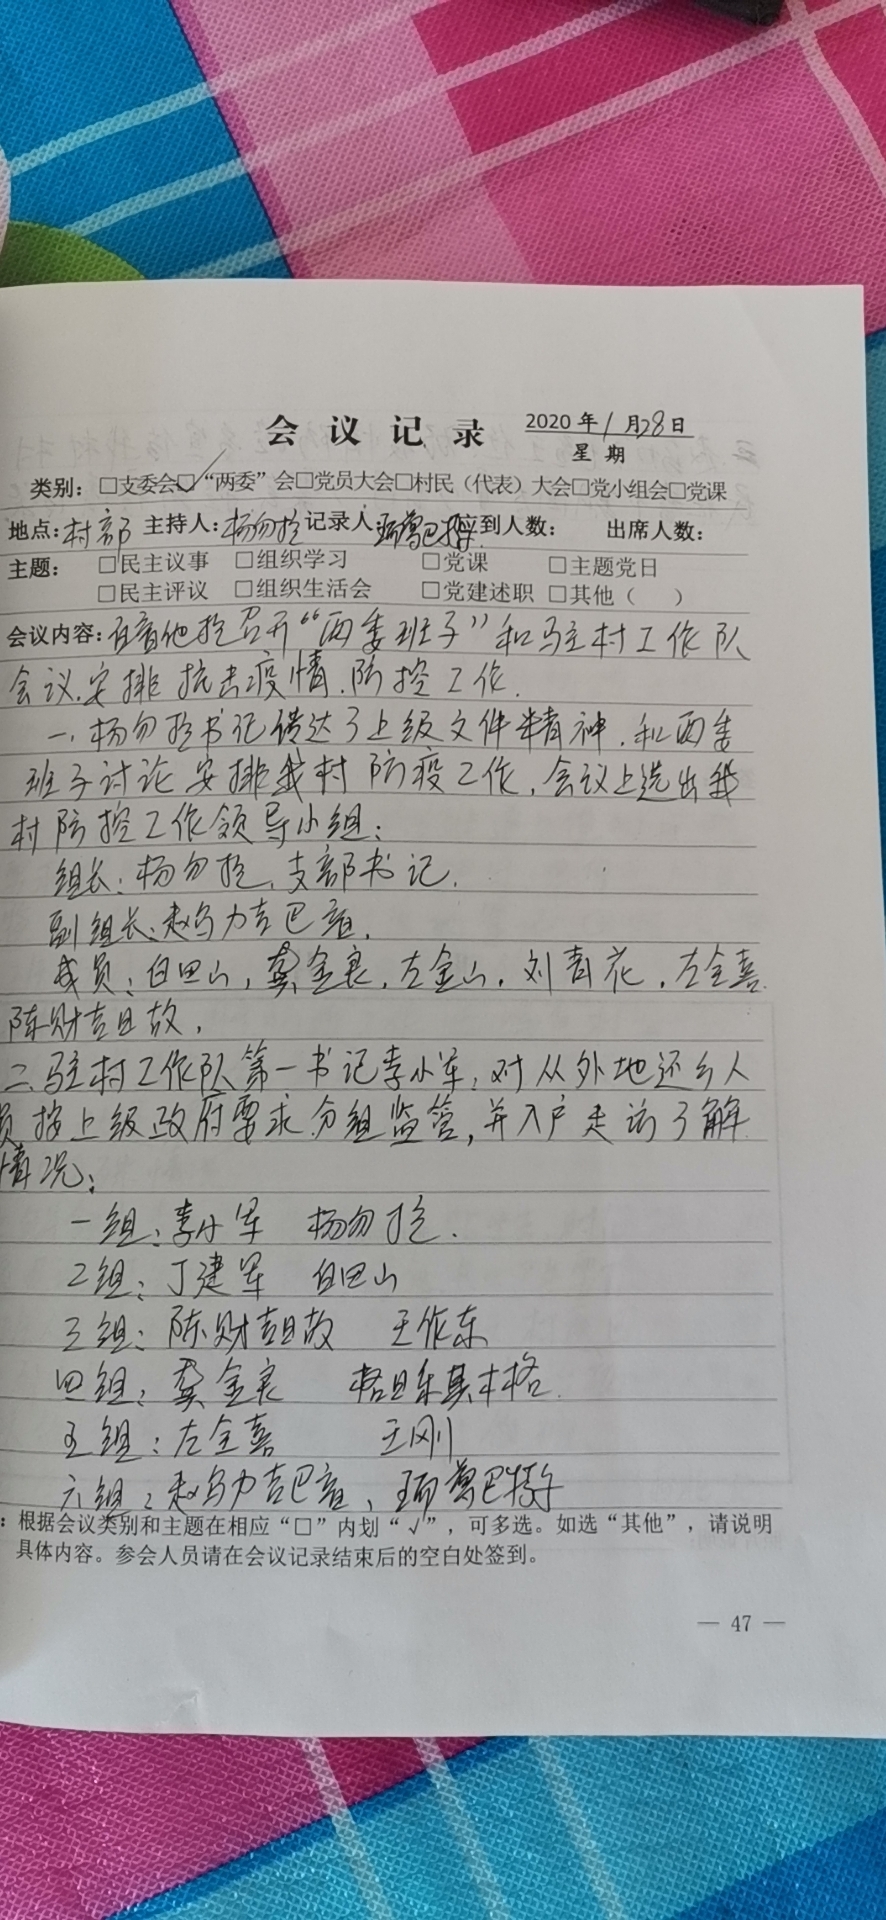 会议记录 2020年1月28日
星期
类别：□支委会☑“两委”会□党员大会□村民（代表）大会□党小组会□党课
地点：村部 主持人：杨勿拉 记录人： 应到人数： 出席人数：
主题： □民主议事 □组织学习 □党课 □主题党日
□民主评议 □组织生活会 □党建述职 □其他（ ）
会议内容： 召开“两委班子”和驻村工作队
会议.安排抗击疫情.防控工作.
一、杨勿拉书记传达了上级文件精神.和两委
班子讨论安排我村防疫工作，会议上选出我
村防控工作领导小组：
组长：杨勿拉，支部书记.
副组长：赵乌力吉巴音.
成员：白田山，龚金良，左金山，刘青花，左全喜.
陈财吉日故，
二、驻村工作队第一书记李小军，对从外地还乡人
员按上级政府要求分组监管，并入户走访了解
情况：
一组：李小军 杨勿拉.
2组：丁建军 白田山
三组：陈财吉日故 王作东
四组：龚金良 格日乐其木格.
五组：左全喜 王刚
六组：赵乌力吉巴音、
：根据会议类别和主题在相应“□”内划“√”，可多选。如选“其他”，请说明
具体内容。参会人员请在会议记录结束后的空白处签到。
— 47 —